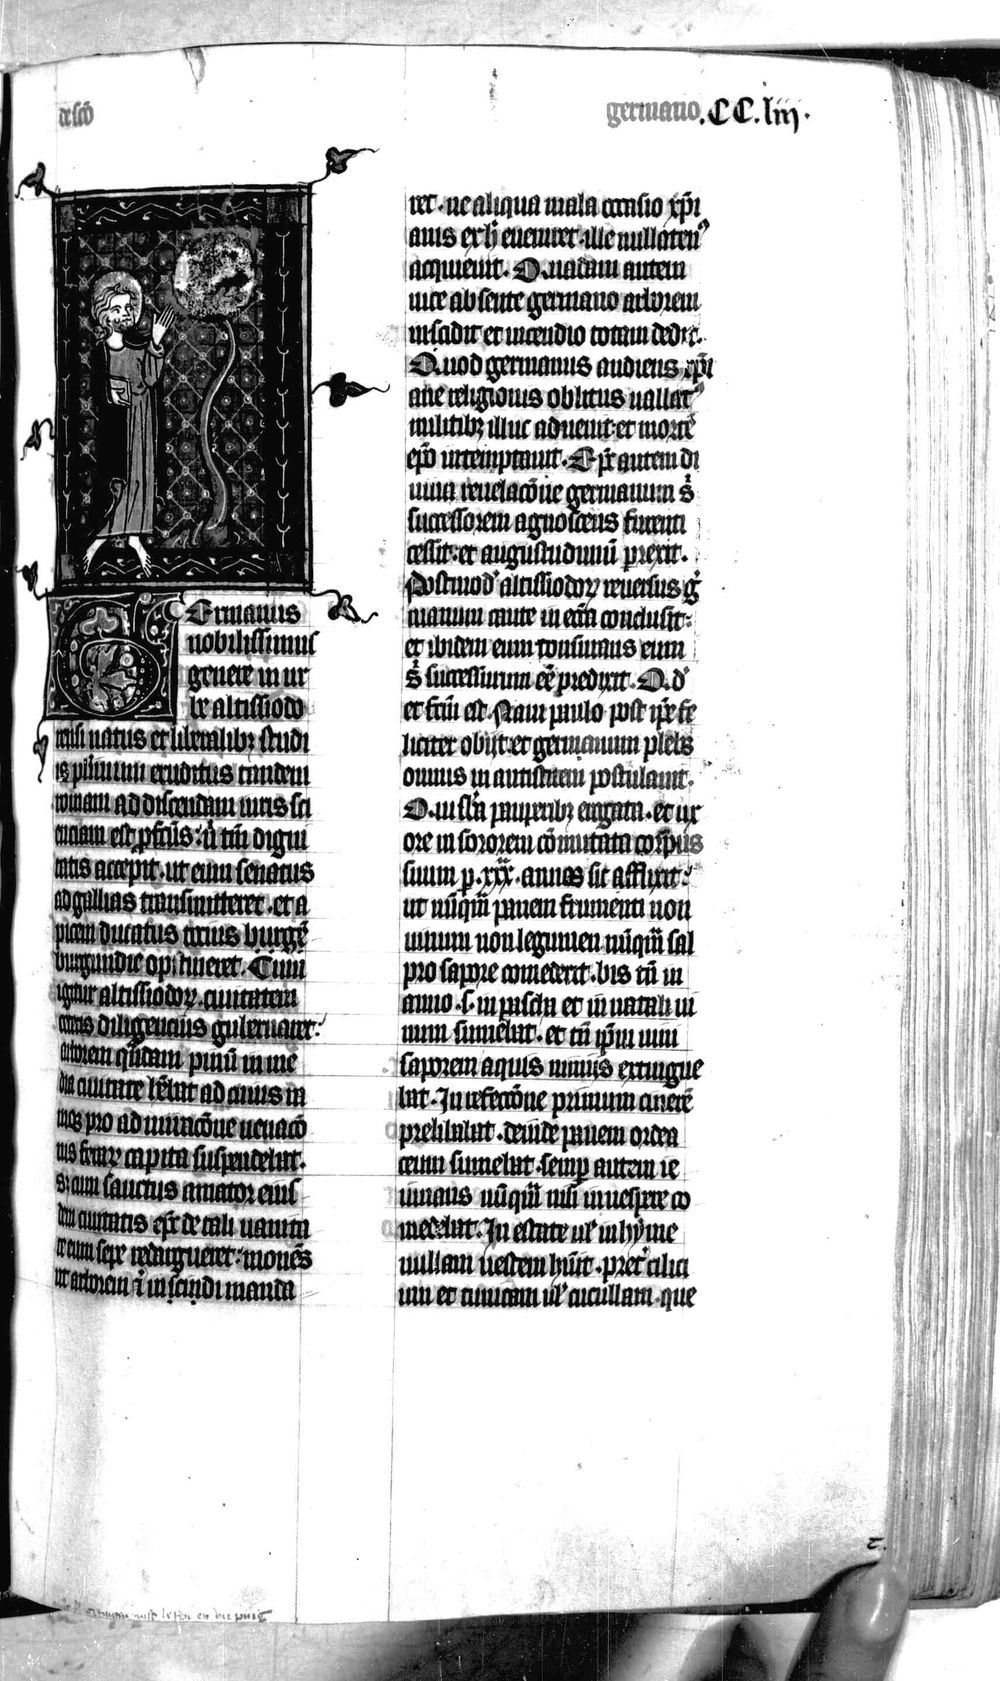 de scō
germano .CC.liij.
Germanus
nobilissimus
genere in ur
be altissiodo
rensi natus et liberalibꝫ studi
is plurimum eruditus tandem
romam ad discendam iuris sci
enciam est ꝓfectus: ubi tm̄ digni
tatis accepit. ut eum senatus
ad gallias transmitteret. et a
picem ducatus tocius burgē
burgundie optineret. Cum
igitur altissiodoꝝ ciuitatem
ceteris diligencius gubernaret:
arborem qndam pinū in me
dia ciuitate hēbat ad cuius ra
mos pro admiracōne uenacō
nis feraꝝ capita suspendebat.
Sꝫ cum sanctus amator eius
dem ciuitatis ep̄c de tali uanita
te eum sepe redargueret: monēs
ut arborem inscindi manda
ret. ne aliqua mala occasio xp̄i
anis ex hͦ eueniret. ille nullaten9
acquieuit. Quadam autem
uice absente germano arborem
inscidit et incendio totam dedit.
Quod germanus audiens xp̄i
ane religionis oblitus uallat9
militibꝫ illuc aduenit et mortē
ep̄o intemptauit. Ep̄c autem di
uina reuelacōne germanum sͥ
successorem agnoscens furenti
cessit. et augustudunū perexit.
Postmodͫ altissiodoꝝ reuersus gͤ
manum caute in ecc̄a conclusit:
et ibidem eum tonsurans eum
sͥ successurum eē predixit. Q.dͫ
et fcm̄ est. Nam paulo post ip̄e fe
liciter obijt et germanum plebs
omnis in antistitem postulauit.
Qui sua pauperibꝫ erogata. et ux
ore in sororem cōmutata corpus
suum p .xxx. annos sic afflixit:
ut nūqm̄ panem frumenti non
uinum non legumen nūqm̄ sal
pro sapore comederit. bis tn̄ in
anno .s. in pascha et in natali ui
num sumebat. et tn̄ ip̄m uini
saporem aquis nimiis extingue
bat. In refectōne primum cinerē
prelibabat. deinde panem ordea
ceum sumebat. semp̄ autem ie
iunans nūqm̄ nisi in uespere co
medebat. In estate ul̓ in hyeme
nullam uestem hūit. pret̓ cilici
um et tunicam ul̓ cucullam. que